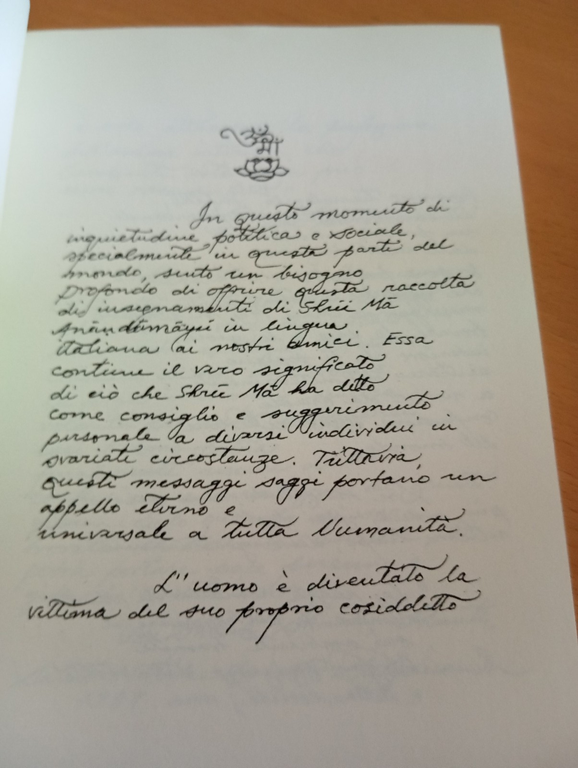 ॐ
माँ
In questo momento di
inquietudine politica e sociale,
specialmente in questa parte del
mondo, sento un bisogno
profondo di offrire questa raccolta
di insegnamenti di Shrii Mā
Ānāndāmāyii in lingua
italiana ai nostri amici. Essa
contiene il vero significato
di ciò che Shrīi Mā ha detto
come consiglio e suggerimento
personale a diversi individui in
svariate circostanze. Tuttavia,
questi messaggi saggi portano un
appello eterno e
universale a tutta l'umanità.
L'uomo è diventato la
vittima del suo proprio cosiddetto